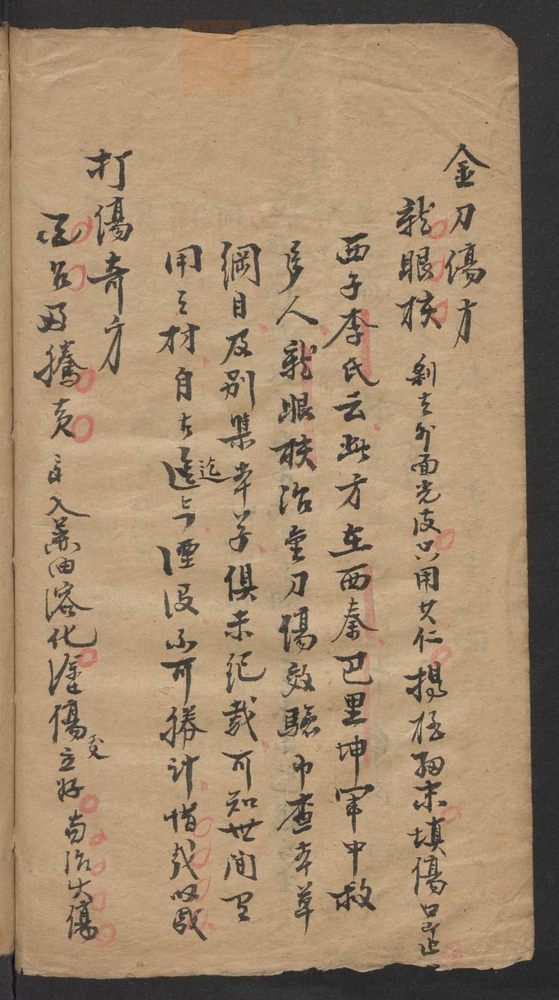 金刀傷方
龍眼核 剝去外面光皮只用其仁搗極細末填傷口即止
西予李氏云此方在西秦巴里坤軍中救
多人龍眼核治金刀傷效驗而查本草
綱目及別集本草俱未紀載可知世間有
用之材自古迄今湮沒不可勝計惜哉
打傷奇方
頭入蔴油溶化塗傷處立好兼治火傷